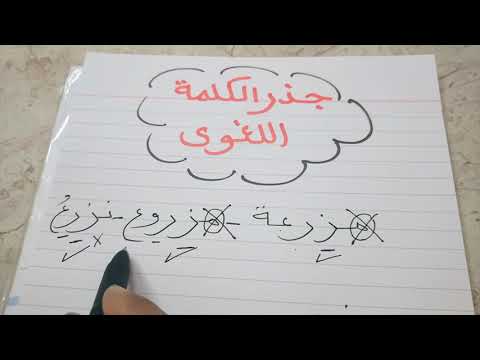 جذر الكلمة
اللغوى
مزرعة - مزروع - نزرعُ